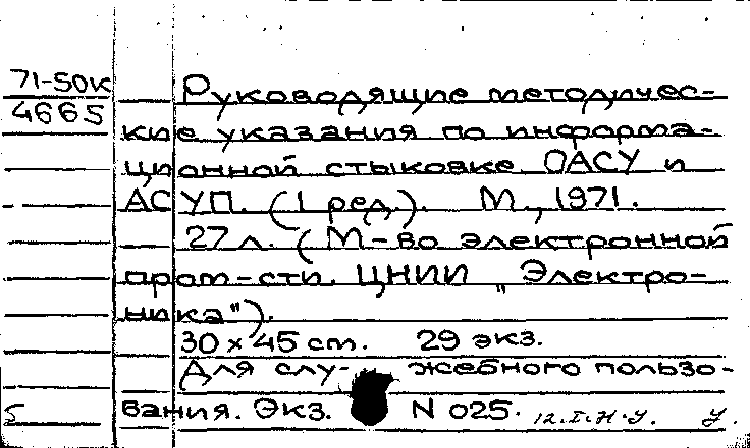 71-50к
4665
Руководящие методичес-
кие указания по информа-
ционной стыковке ОАСУ и
АСУП. (1 ред.). М., 1971.
27 л. (М-во электронной
пром-сти. ЦНИИ „Электро-
ника").
30 х 45 cm. 29 экз.
Для слу- жебного пользо-
вания. Экз. N 025.